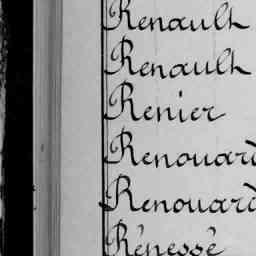 Renault
Renault
Renier
Renouard
Renouard
Rénessé